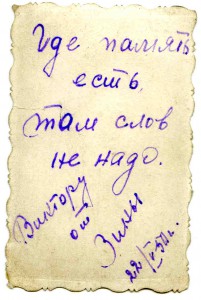 Где память
есть,
там слов
не надо.
Виктору
от
Зины
22/V-51г.